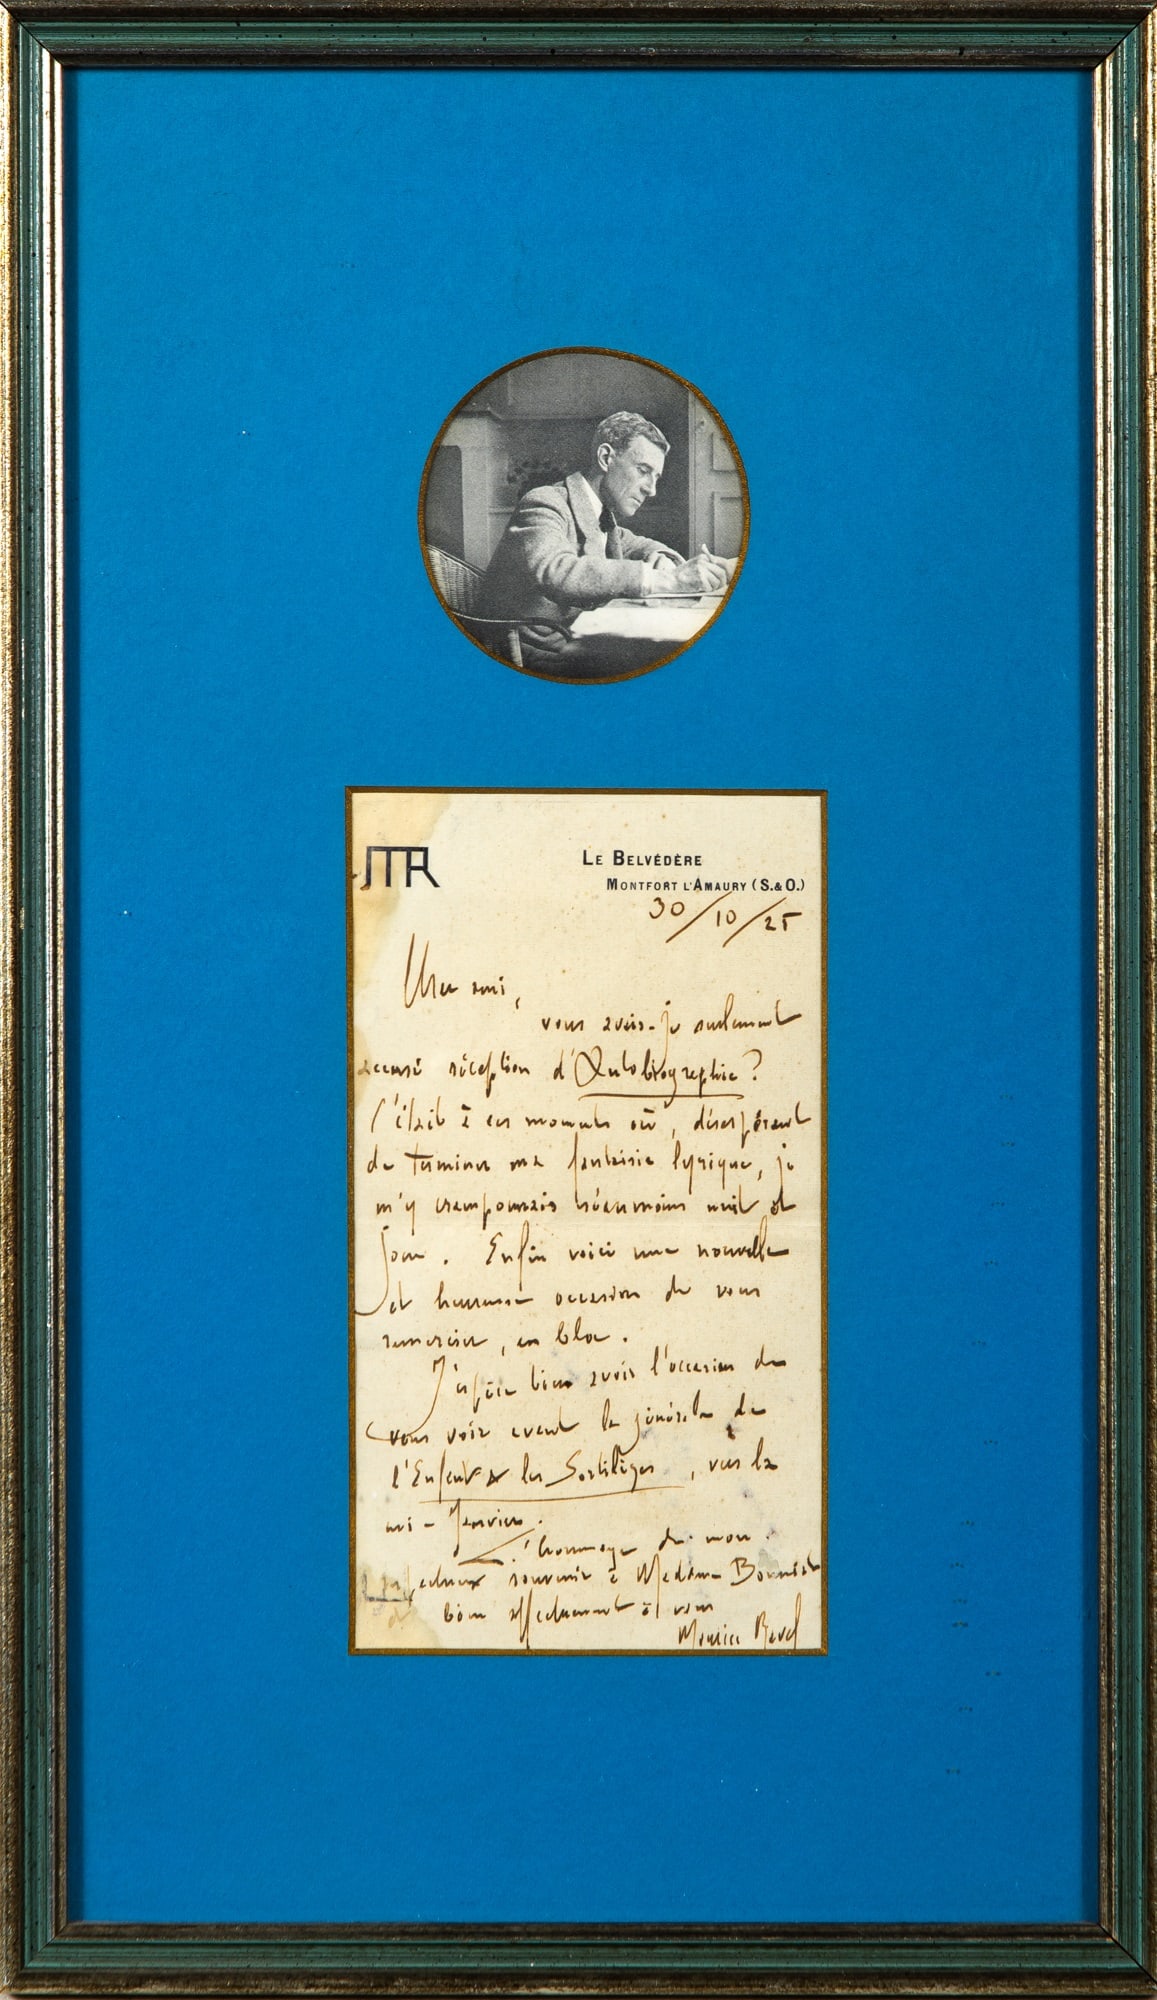 MR
LE BELVÉDÈRE
MONTFORT L'AMAURY (S. & O.)
30/10/25
Cher ami,
vous avais-je seulement
accusé réception d'Autobiographie?
C'était à ces moments où, désespérant
de terminer ma fantaisie lyrique, je
m'y cramponnais néanmoins nuit et
jour. Enfin voici une nouvelle
et heureuse occasion de vous
remercier, en bloc.
J'espère bien avoir l'occasion de
vous voir avant la générale de
l'Enfant & les Sortilèges, vers la
mi-Janvier.
l'hommage de mon
respectueux souvenir à Madame
bien affectueusement à vous
Maurice Ravel